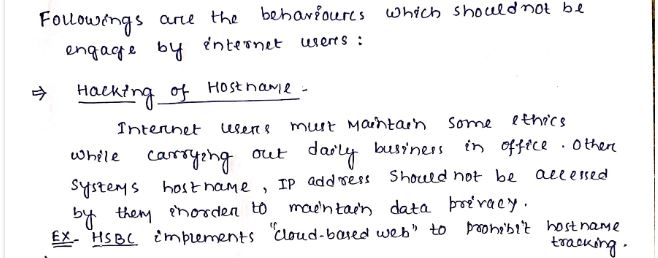 Followings are the behaviours which should not be
engage by internet users :
⇒ Hacking of Hostname -
Internet users must Maintain some ethics
while carrying out daily business in office. Other
systems host name, IP address should not be accessed
by them inorder to maintain data privacy.
EX- HSBC implements "cloud-based web" to prohibit hostname
tracking.